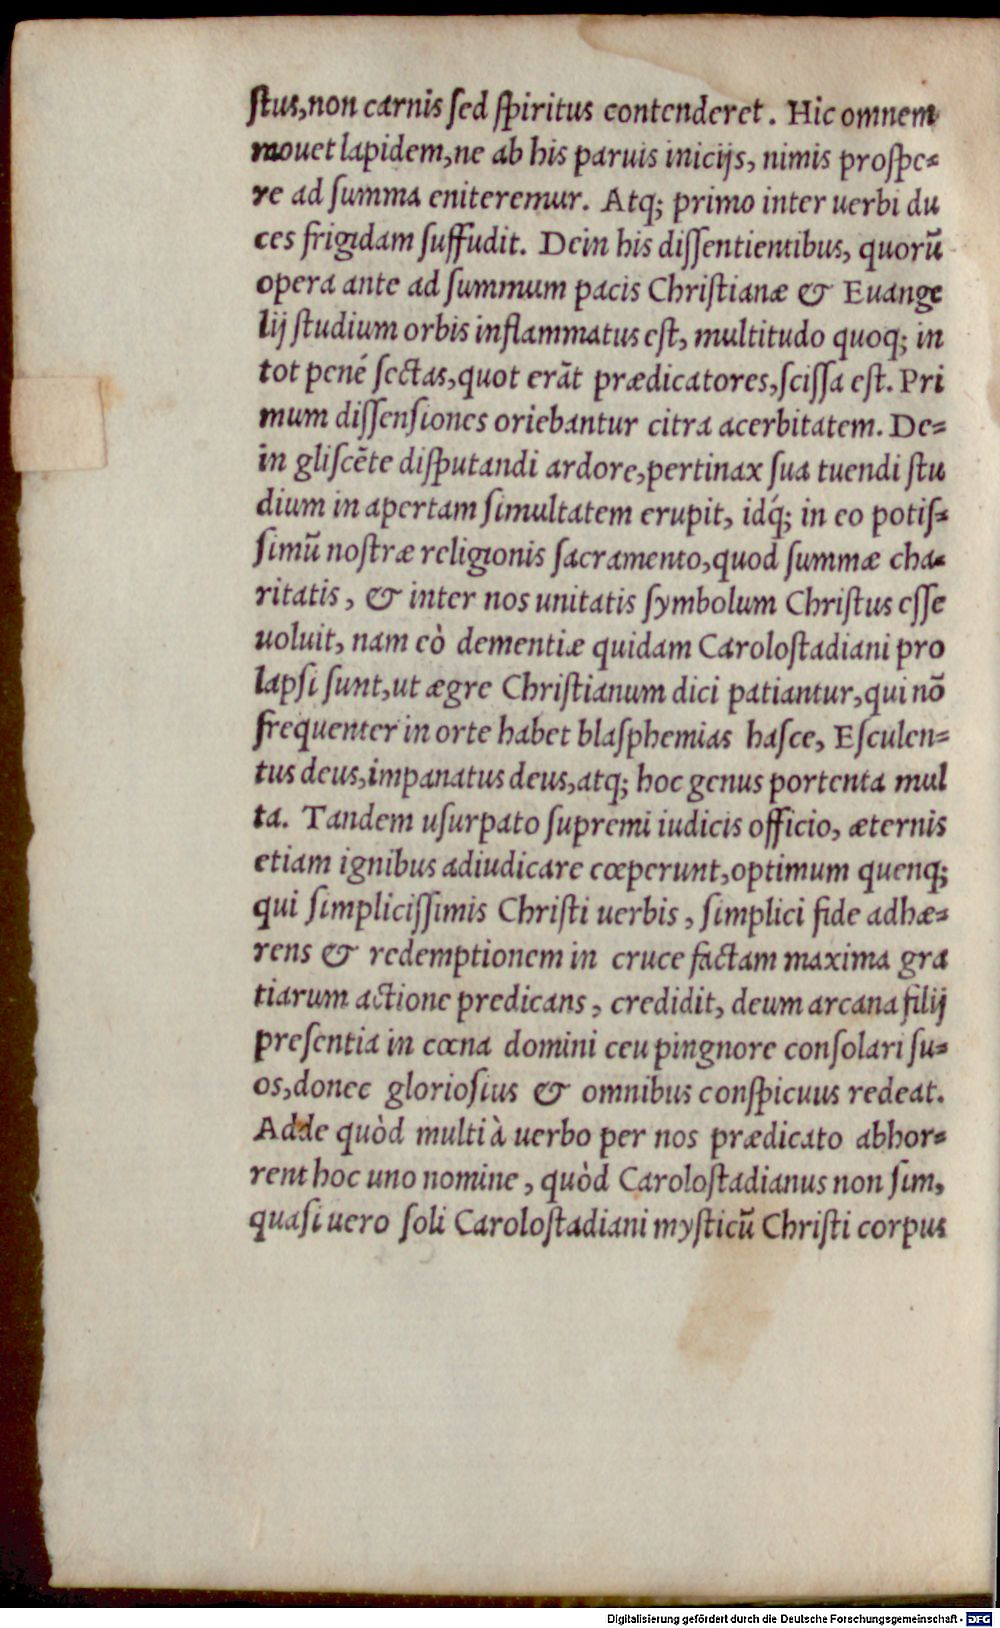 ſtus,non carnis ſed ſpiritus contenderet. Hic omnem
mouet lapidem,ne ab his paruis inicijs, nimis proſpe=
re ad ſumma eniteremur. Atq; primo inter uerbi du
ces frigidam ſuffudit. Dein his diſſentientibus, quorũ
opera ante ad ſummum pacis Chriſtianæ & Euange
lij ſtudium orbis inflammatus eſt, multitudo quoq; in
tot pené ſectas,quot erãt prædicatores,ſciſſa eſt. Pri
mum diſſenſiones oriebantur citra acerbitatem. De=
in gliſcẽte diſputandi ardore,pertinax ſua tuendi ſtu
dium in apertam ſimultatem erupit, idq́; in eo potiſ=
ſimũ noſtræ religionis ſacramento,quod ſummæ cha=
ritatis, & inter nos unitatis ſymbolum Chriſtus eſſe
uoluit, nam eò dementiæ quidam Caroloſtadiani pro
lapſi ſunt,ut ægre Chriſtianum dici patiantur,qui nõ
frequenter in orte habet blaſphemias haſce, Eſculen=
tus deus,impanatus deus,atq; hoc genus portenta mul
ta. Tandem uſurpato ſupremi iudicis officio, æternis
etiam ignibus adiudicare cœperunt,optimum quenq;
qui ſimpliciſſimis Chriſti uerbis, ſimplici fide adhæ=
rens & redemptionem in cruce factam maxima gra
tiarum actione predicans, credidit, deum arcana filij
preſentia in cœna domini ceu pingnore conſolari ſu=
os,donec glorioſius & omnibus conſpicuus redeat.
Adde quòd multi à uerbo per nos prædicato abhor=
rent hoc uno nomine, quòd Caroloſtadianus non ſim,
quaſi uero ſoli Caroloſtadiani myſticũ Chriſti corpus
Digitalisierung gefördert durch die Deutsche Forschungsgemeinschaft - DFG